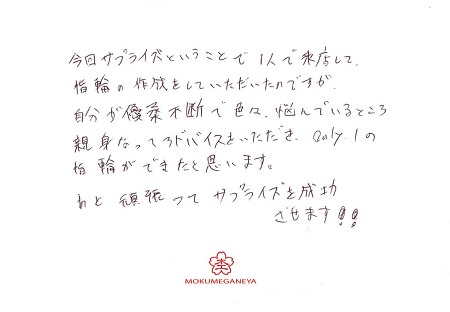 今回サプライズということで1人で来店して、
指輪の作成をしていただいたのですが、
自分が優柔不断で色々、悩んでいるところ
親身なってアドバイスをいただき、only.1の
指輪ができたと思います。
あと頑張ってサプライズを成功
させます!!
MOKUMEGANEYA